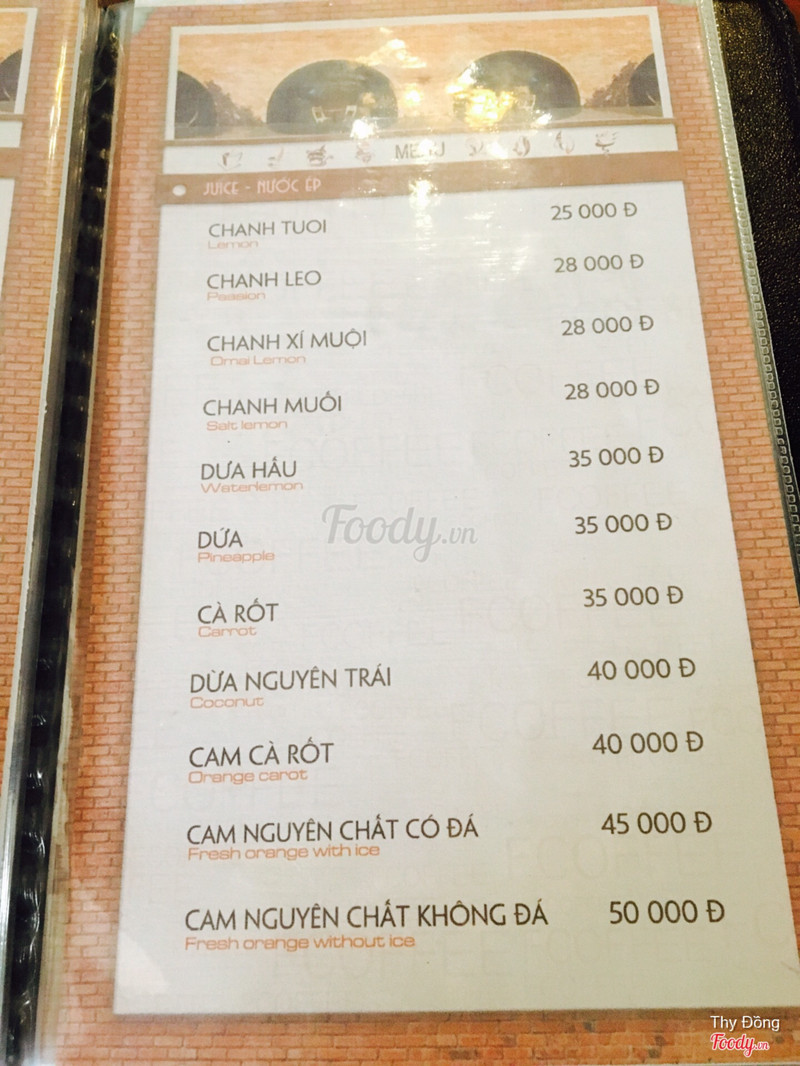 MENU
JUICE - NƯỚC ÉP
CHANH TUOI 25 000 Đ
Lemon
CHANH LEO 28 000 Đ
Passion
CHANH XÍ MUỘI 28 000 Đ
Omai Lemon
CHANH MUỐI 28 000 Đ
Salt lemon
DƯA HẤU 35 000 Đ
Waterlemon
Foody.vn
DỨA 35 000 Đ
Pineapple
CÀ RỐT 35 000 Đ
Carrot
DỪA NGUYÊN TRÁI 40 000 Đ
Coconut
CAM CÀ RỐT 40 000 Đ
Orange carot
CAM NGUYÊN CHẤT CÓ ĐÁ 45 000 Đ
Fresh orange with ice
CAM NGUYÊN CHẤT KHÔNG ĐÁ 50 000 Đ
Fresh orange without ice
Thy Đồng
Foody.vn